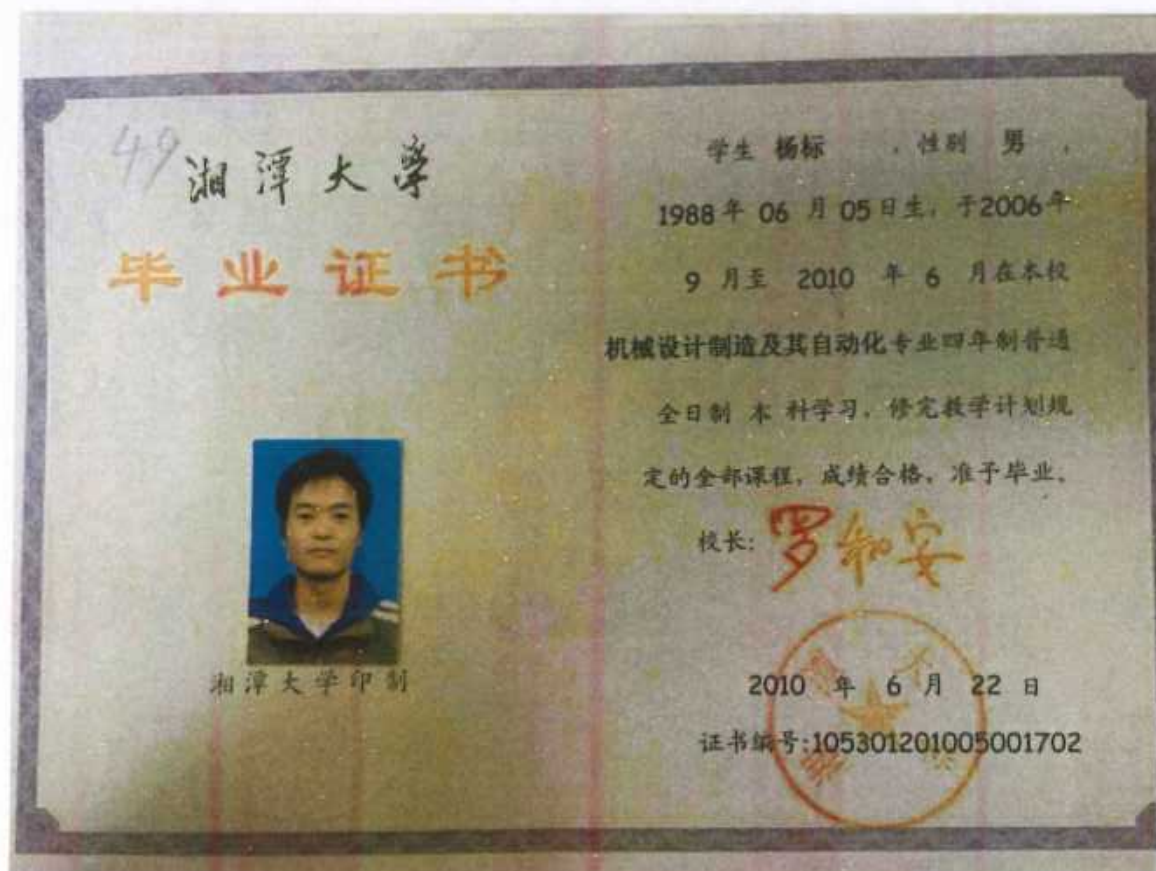 49
湘潭大学
毕业证书
湘潭大学印制
学生 杨标 ,性别 男 ,
1988年 06 月 05日生,于2006年
9 月至 2010 年 6 月在本校
机械设计制造及其自动化专业四年制普通
全日制 本 科学习,修完教学计划规
定的全部课程,成绩合格,准予毕业。
校长:罗和安
2010 年 6 月 22 日
证书编号:105301201005001702
湘潭大学